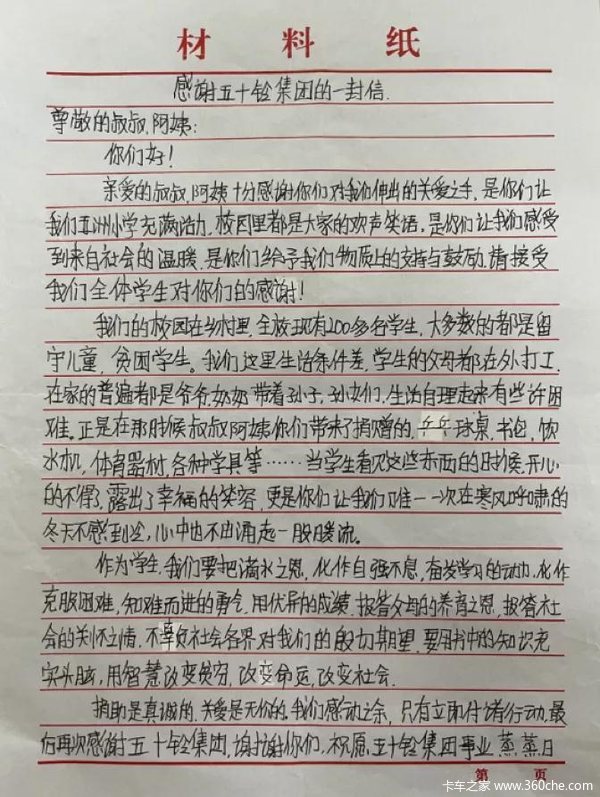 材料纸
感谢五十铃集团的一封信.
尊敬的叔叔,阿姨:
你们好!
亲爱的叔叔,阿姨十分感谢你们对我们伸出的关爱之手,是你们让
我们五洲小学充满活力,校园里都是大家的欢声笑语,是你们让我们感受
到来自社会的温暖,是你们给予我们物质上的支持与鼓励,请接受
我们全体学生对你们的感谢!
我们的校园在乡村里,全校现有200多名学生,大多数的都是留
守儿童,贫困学生。我们这里生活条件差,学生的父母都在外打工,
在家的普遍都是爷爷,奶奶带着孙子,孙女们,生活自理起来有些许困
难。正是在那时候叔叔阿姨你们带来了捐赠的,乒乓球桌,书包,饮
水机,体育器材,各种学具等……当学生看见这些东西的时候,开心
的不得了,露出了幸福的笑容,更是你们让我们唯一一次在寒风呼肃的
冬天不感到冷,心中也不由涌起一股暖流。
作为学生,我们要把滴水之恩,化作自强不息,奋发学习的动力,化作
克服困难,知难而进的勇气,用优异的成绩,报答父母的养育之恩,报答社
会的关怀之情,不辜负社会各界对我们的殷切期望,要用书中的知识充
实头脑,用智慧改变贫穷,改变命运,改变社会.
捐助是真诚的,关爱是无价的,我们感动之余,只有立即付诸行动,最
后再次感谢五十铃集团,谢谢你们,祝愿五十铃集团事业蒸蒸日
第 页
卡车之家 www.360che.com